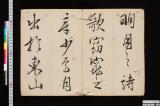 明月之詩
歌窈窕之
章少焉月
出於東山